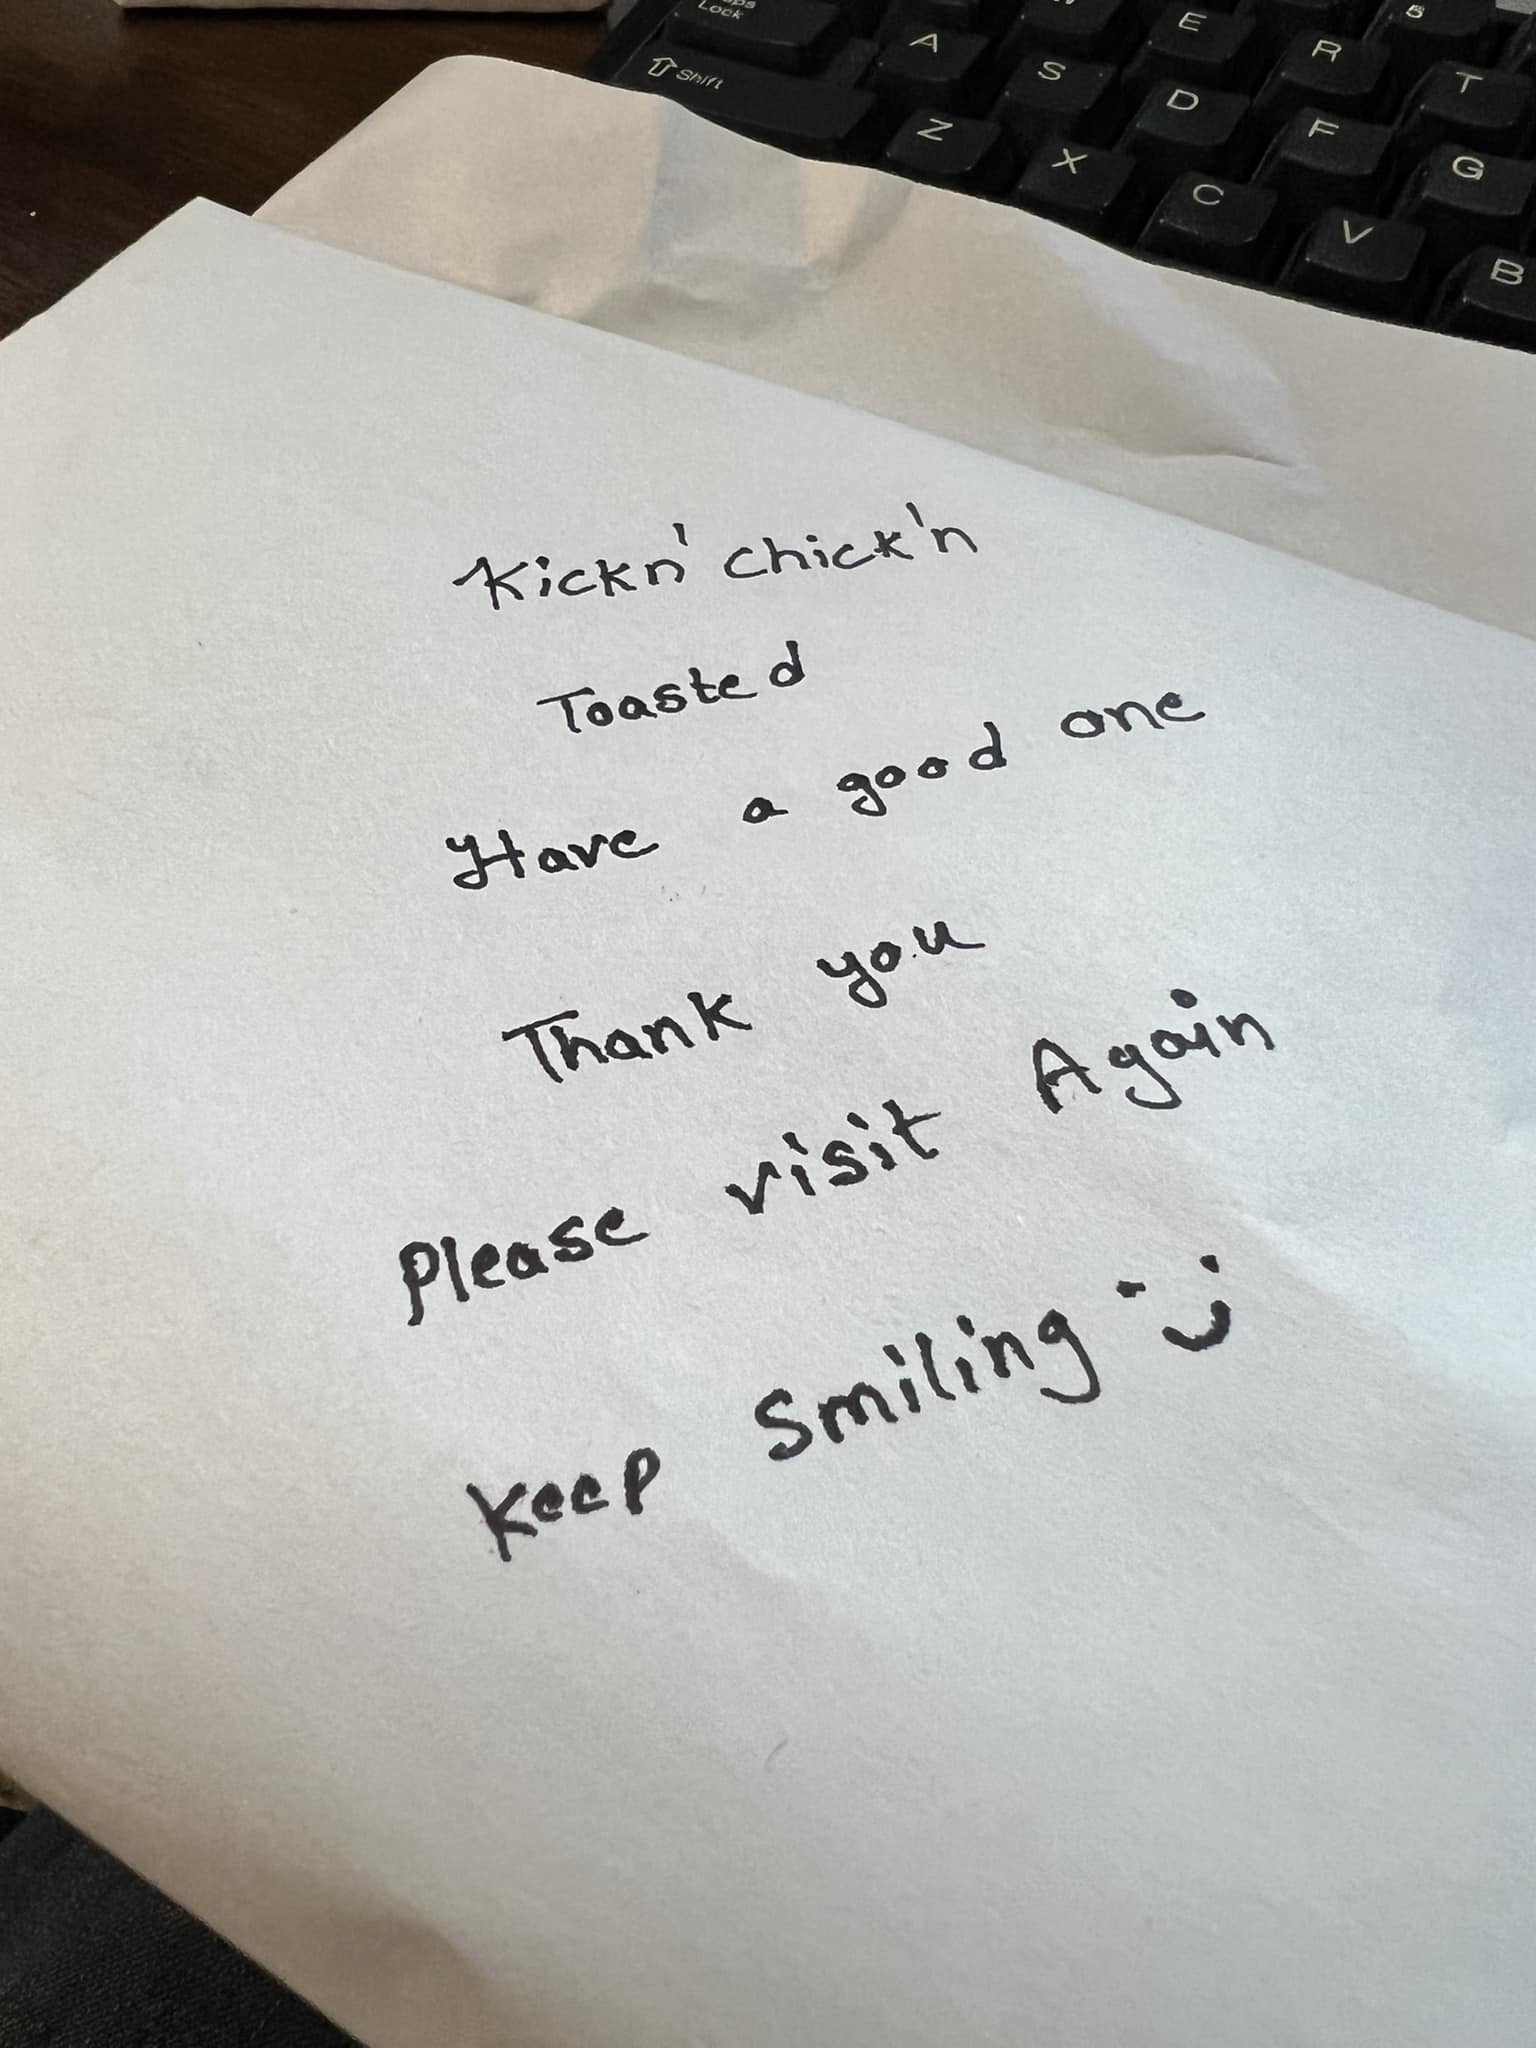 Caps Lock
W E R 5
A S D F T
Shift Z X C V G B
Kickn' chick'n
Toasted
Have a good one
Thank you
Please visit Again
Keep Smiling